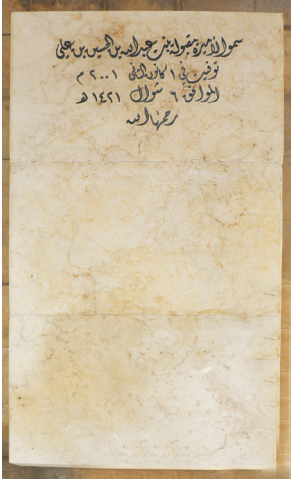 سمو الأميرة مقبولة بنت عبدالله بن الحسين بن علي
توفيت في ١ كانون الثاني ٢٠٠١ م
الموافق ٦ شوال ١٤٢١ هـ
رحمها الله